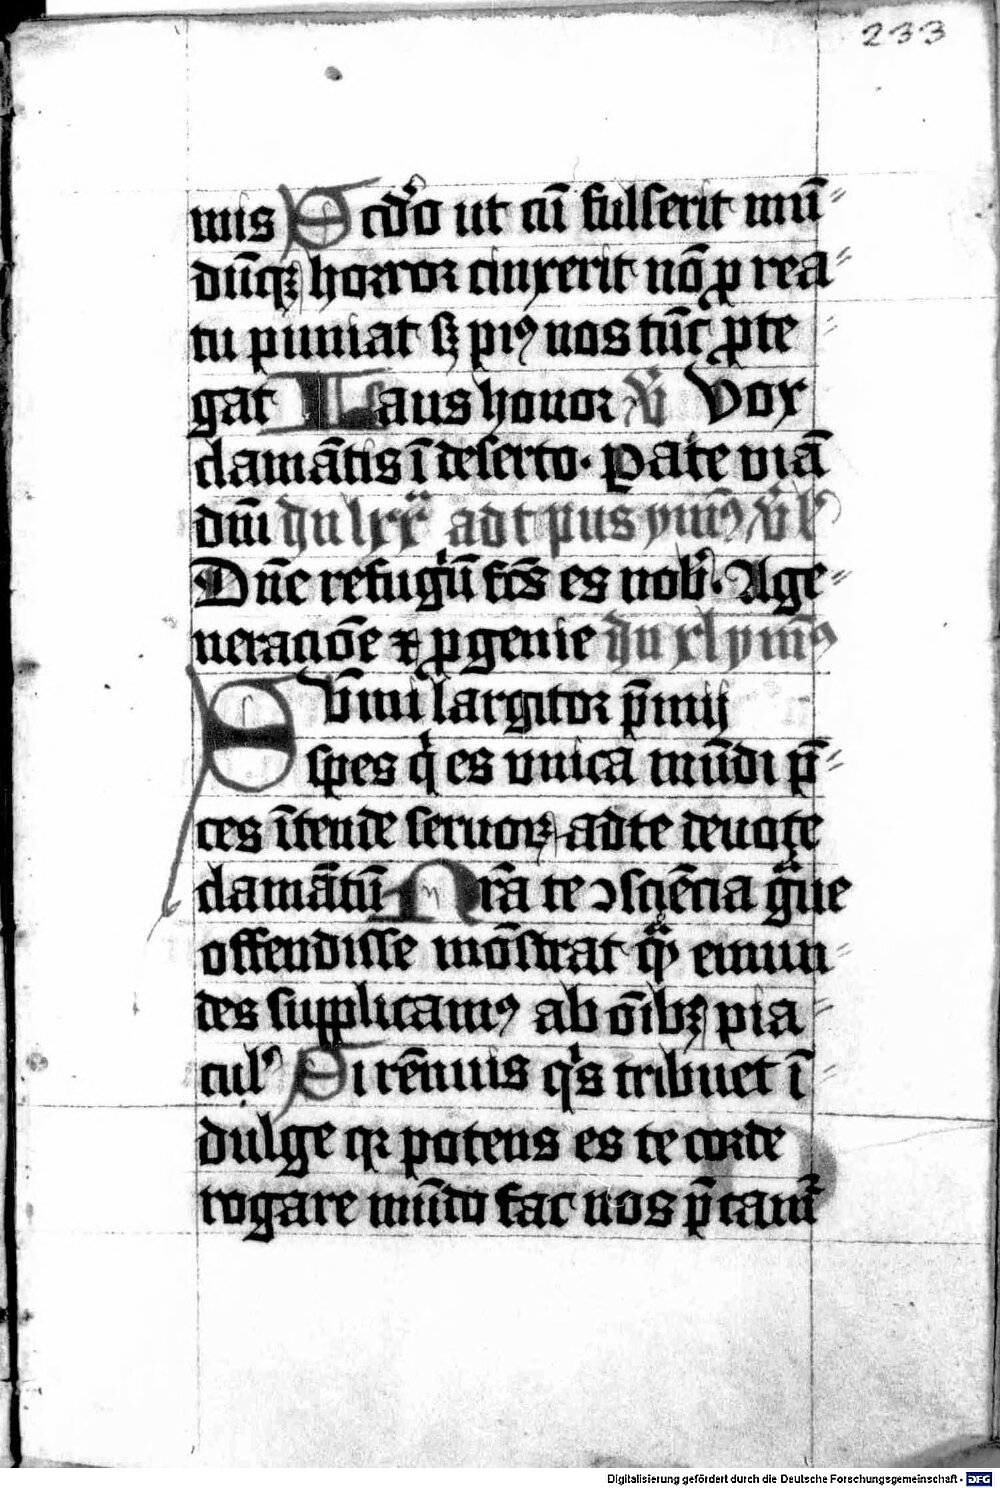 233
mis Scd̓o ut cū fulserit mū⸗
dūqꝫ horror cinxerit nō ꝓ rea⸗
tu puniat sꝫ piꝰ nos tūc ꝓte⸗
gat Laus honor V̄ Vox
clamātis ī deserto. Pate viā
dm̄i
Dn̄e refugiū fcs̄ es nob̓. A ge⸗
neracōe ⁊ ꝓgenie
Sūmi largitor p̄mij
spes q̇ es vnica mūdi p̄⸗
ces ītende seruoꝝ ad te deuote
clamātū Nr̄a te ↄsciēcia gͣue
offendisse mōstrat qͣꝫ emun⸗
des supplicamꝰ ab oībꝫ pia⸗
cul̓ Si rēnuis q̇s tribuet ī⸗
dulge qꝛ potens es te corde
rogare mūdo fac nos p̄camͬ
Digitalisierung gefördert durch die Deutsche Forschungsgemeinschaft - DFG